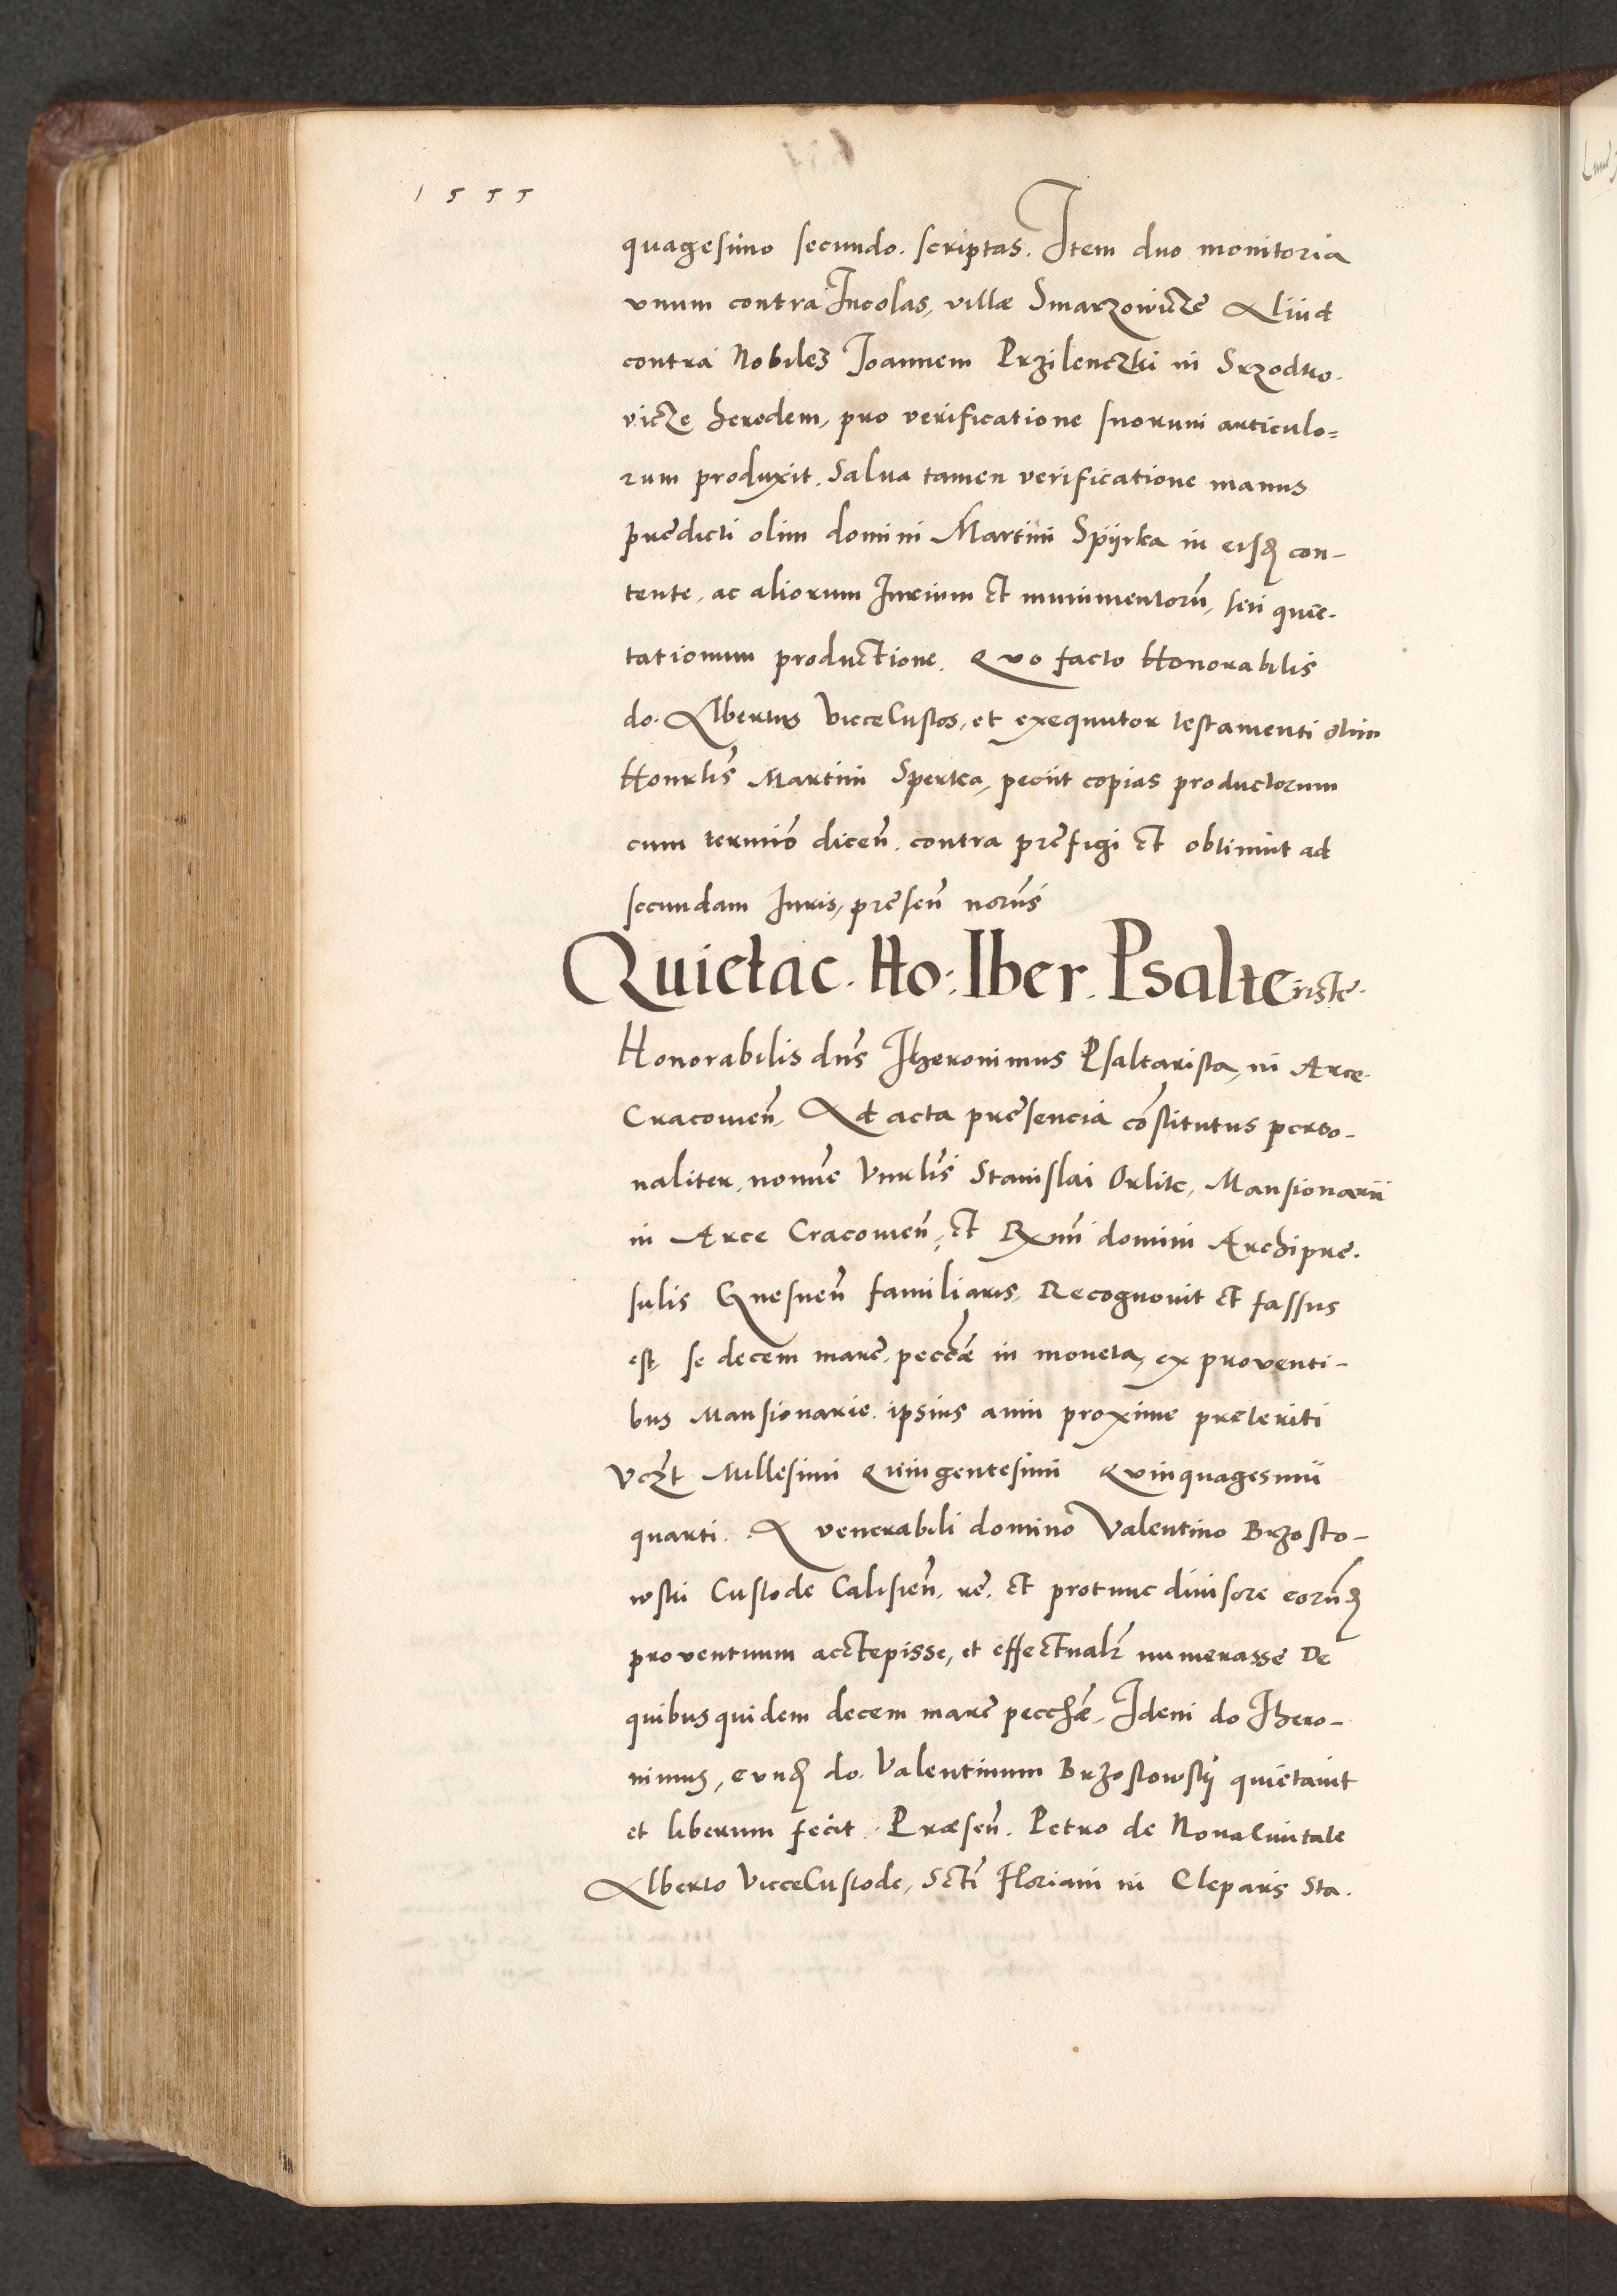 1555
quagesimo secundo. scriptas. Item duo monitoria
vnum contra Incolas, villæ Smarzowicze Aliud
contra Nobilez Joannem Przilenczki in Srzodko.
vicze heredem, pro verificatione suorum articulo=
rum produxit. Salua tamen verificatione manus
predicti olim domini Martini Spijrka in eisdem con-
tente, ac aliorum Iurium et munimentorũ, seu quie-
tationum productione. Quo facto Honorabilis
do. Albertus ViceCustos, et exequutor testamenti olim
Honrlis Martini Sperka, peciit copias productorum
cum termiõ diceñ. contra prefigi et obtinuit ad
secundam Iuris, preseñ
Quietac. Ho: Iher. Psalteriste.
Honorabilis dns Jheronimus Psaltarista, in Arce
Cracovieñ, Ad acta presencia cõstitutus perso-
naliter, nomine Vnrlis Stanislai Orlik, Mansionarii
in Arce Cracovieñ, et Rxmi domini Archipre.
sulis Gnesneñ familiaris, Recognouit et fassus
est, se decem marc. peccæ in moneta, ex proventi-
bus Mansionarie ipsius anni proxime preteriti
Vczt Millesimi Quingentesimi Quinquagesimi
quarti. A venerabili domino Valentino Brzosto-
wski Custode Calisieñ. re. et protunc diuisore eorund
proventuum acctepisse, et effectualr numerasse De
quibus quidem decem marc pecchæ, Idem do Jhero-
nimus, eund do. Valentinum Brzostowskÿ quietauit
et liberum fecit. Præseñ. Petro de Noua Ciuitate
Alberto ViceCustode, Scti Floriani in Cleparz Sta.